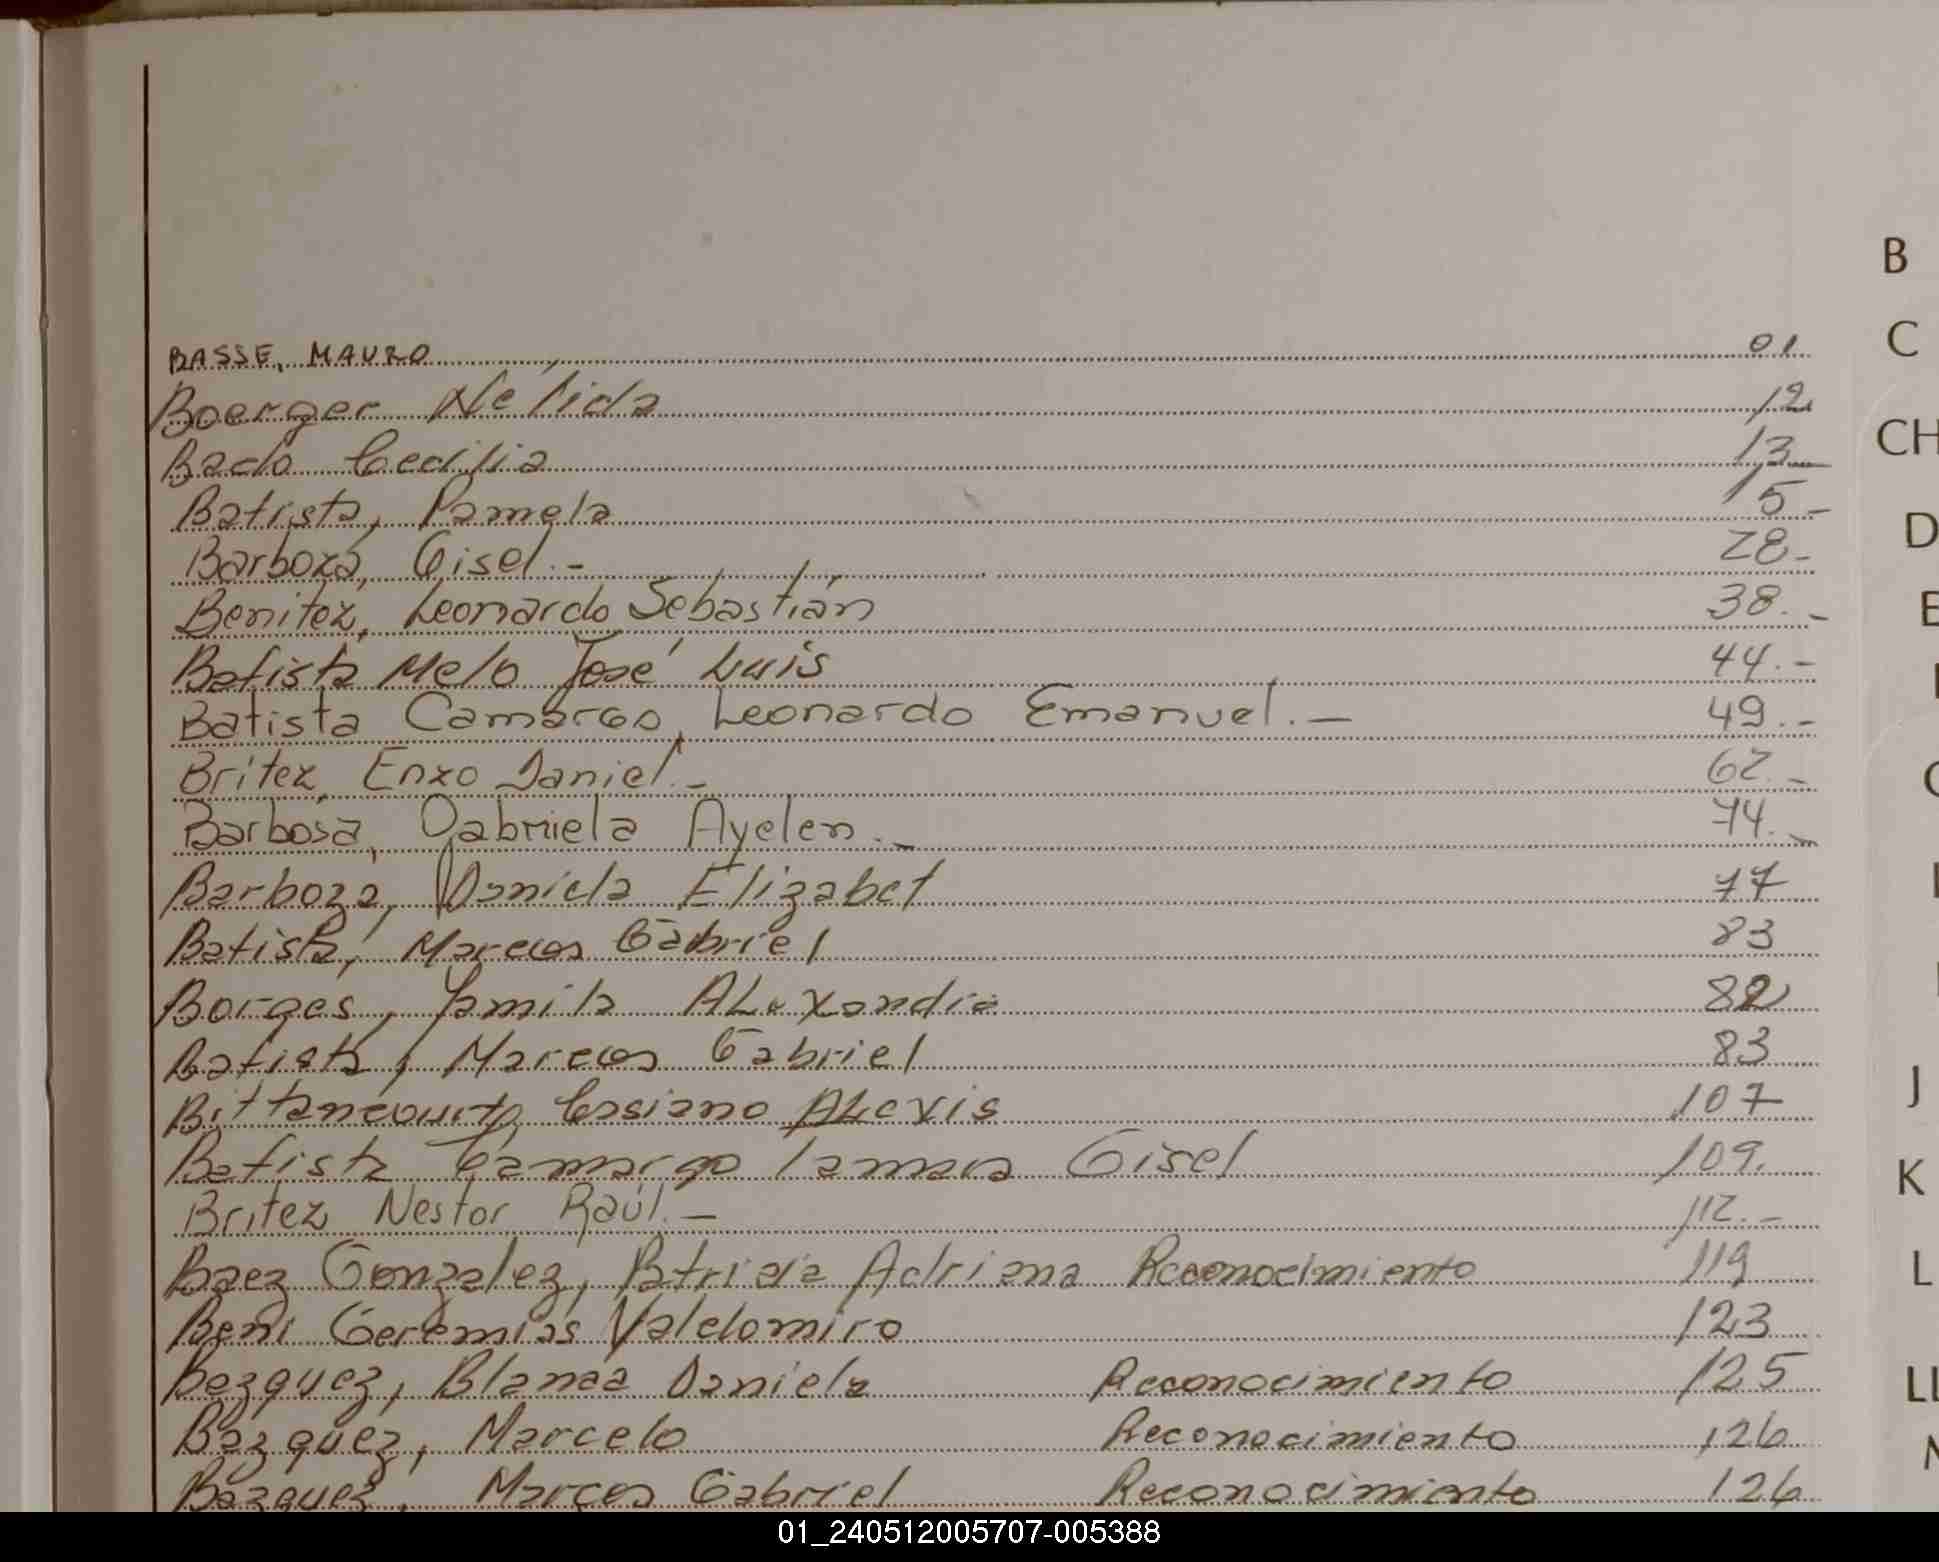 B
C
CH
D
J
K
L
BASSE, MAURO 01
Boerger Nelida 12
Bado Cecilia 13
Batista, Pamela 15-
Barboza, Gisel.- 28-
Benitez, Leonardo Sebastián 38.-
Batista Melo José Luis 44.-
Batista Camargo, Leonardo Emanuel.- 49.-
Britez, Enzo Daniel.- 62.-
Barbosa, Gabriela Ayelen.- 74.-
Barboza, Daniela Elizabet 77
Batista, Marcos Gabriel 83
Borges, Yamila ALexandra 82
Batista, Marcos Gabriel 83
Bittancourt, Casiano ALexis 107
Batista Camargo Tamara Gisel 109.
Britez Nestor Raúl.- 112.-
Baez Gonzalez, Patricia Adriana Reconocimiento 119
Beni Geremias Valdomiro 123
Bazquez, Blanca Daniela Reconocimiento 125
Bazquez, Marcelo Reconocimiento 126
Bazquez, Marcos Gabriel Reconocimiento 126
01_240512005707-005388